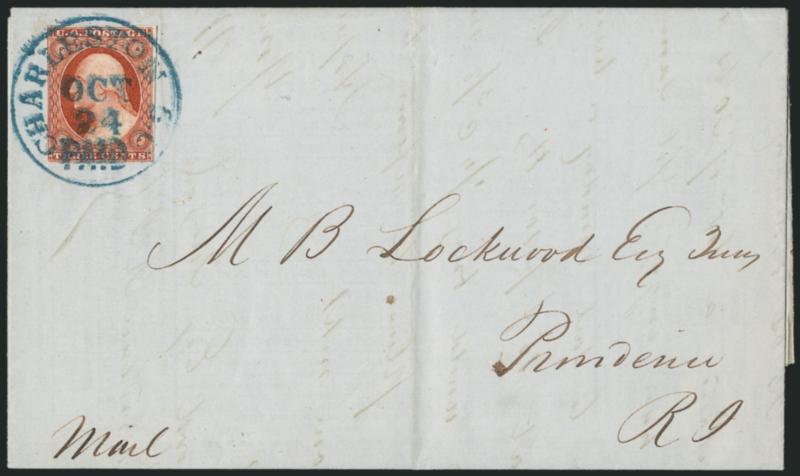 U.S. POSTAGE
THREE CENTS
CHARLESTON S.C.
OCT
24
PAID
M B Lockwood Esq Treas
Providence
R I
Mail